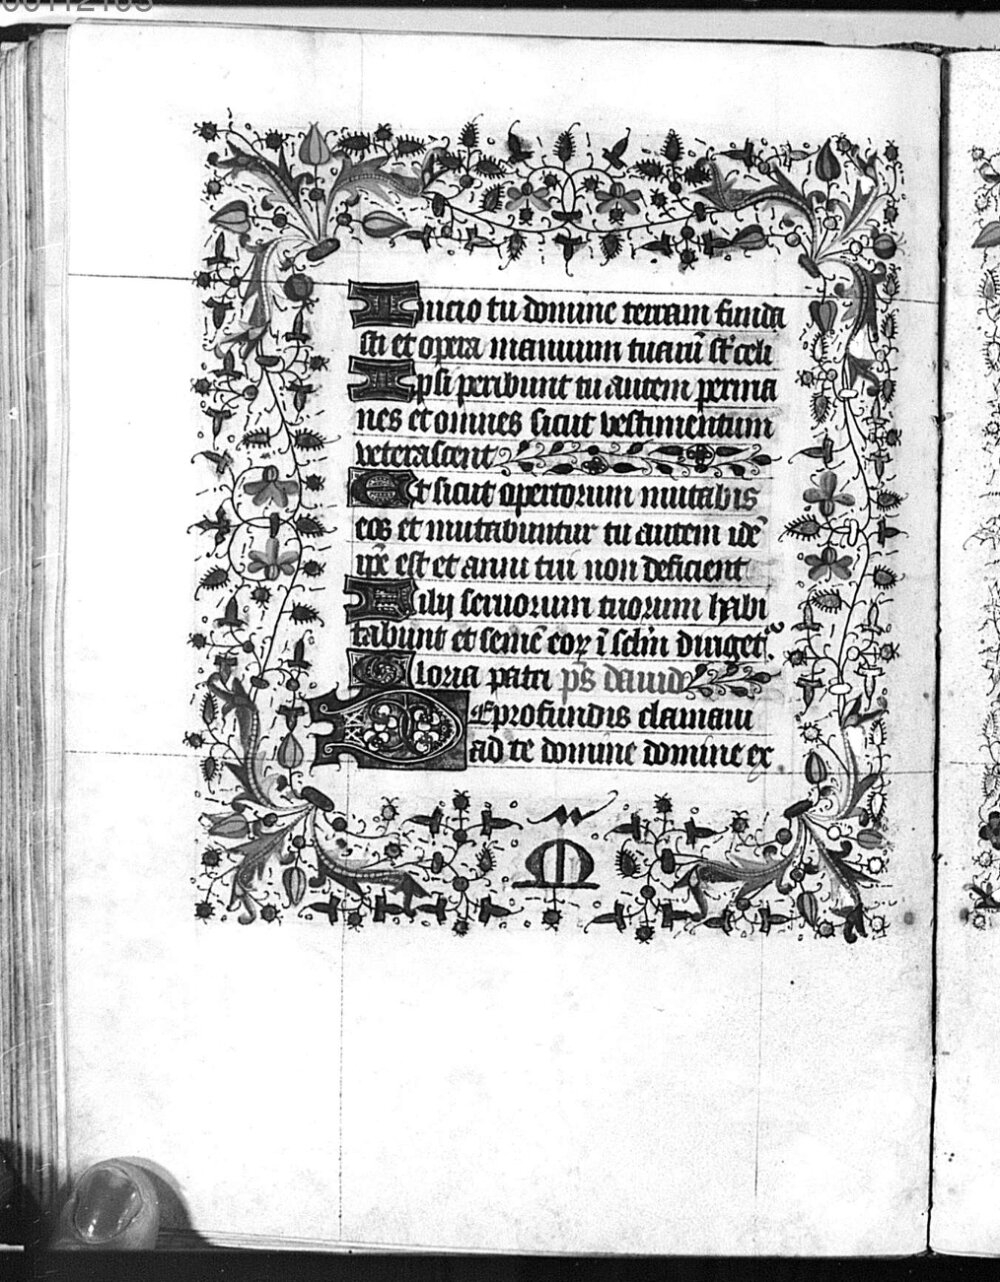 Inicio tu domine terram funda
sti et opera manuum tuarū st̄ celi
Ipsi peribunt tu autem perma
nes et omnes sicut vestimentum
veterascent
Et sicut opertorium mutabis
eos et mutabuntur tu autem idē
ip̄e est et anni tui non deficient
Filij seruorum tuorum habi
tabunt et semē eoꝝ ī sc̄lm diriget᷑
Gloria patri ps̄ dauid
De profundis clamaui
ad te domine domine ex
M